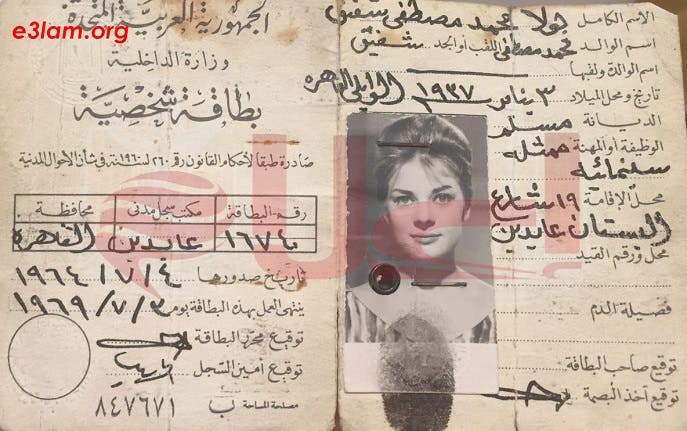 e3lam.org
الجمهورية العربية المتحدة
وزارة الداخلية
بطاقة شخصية
صادرة طبقا لأحكام القانون رقم ٢٦٠ لسنة ١٩٦٠ في شأن الأحوال المدنية
رقم البطاقة مكتب سجل مدنى محافظة
عابدين القاهرة
تاريخ صدورها ٤ / ٧ / ١٩٦٤
ينتهى العمل بهذه البطاقة يوم ٣ / ٧ / ١٩٦٩
توقيع محرر البطاقة
توقيع أمين السجل
مصلحة المساحة ب ٨٤٧٦٧١
الاسم الكامل محمد مصطفى شفيق
اسم الوالد محمد مصطفى اللقب أو الجد شفيق
اسم الوالدة ولقبها
تاريخ ومحل الميلاد ٣ يناير ١٩٣٧ الوايلى القاهره
الديانة مسلمه
الوظيفة أو المهنة ممثله
سينمائيه
محل الإقامة ١٩ شارع
البستان عابدين
محل ورقم القيد
فصيلة الدم
توقيع صاحب البطاقة
توقيع آخذ البصمة
إعلام